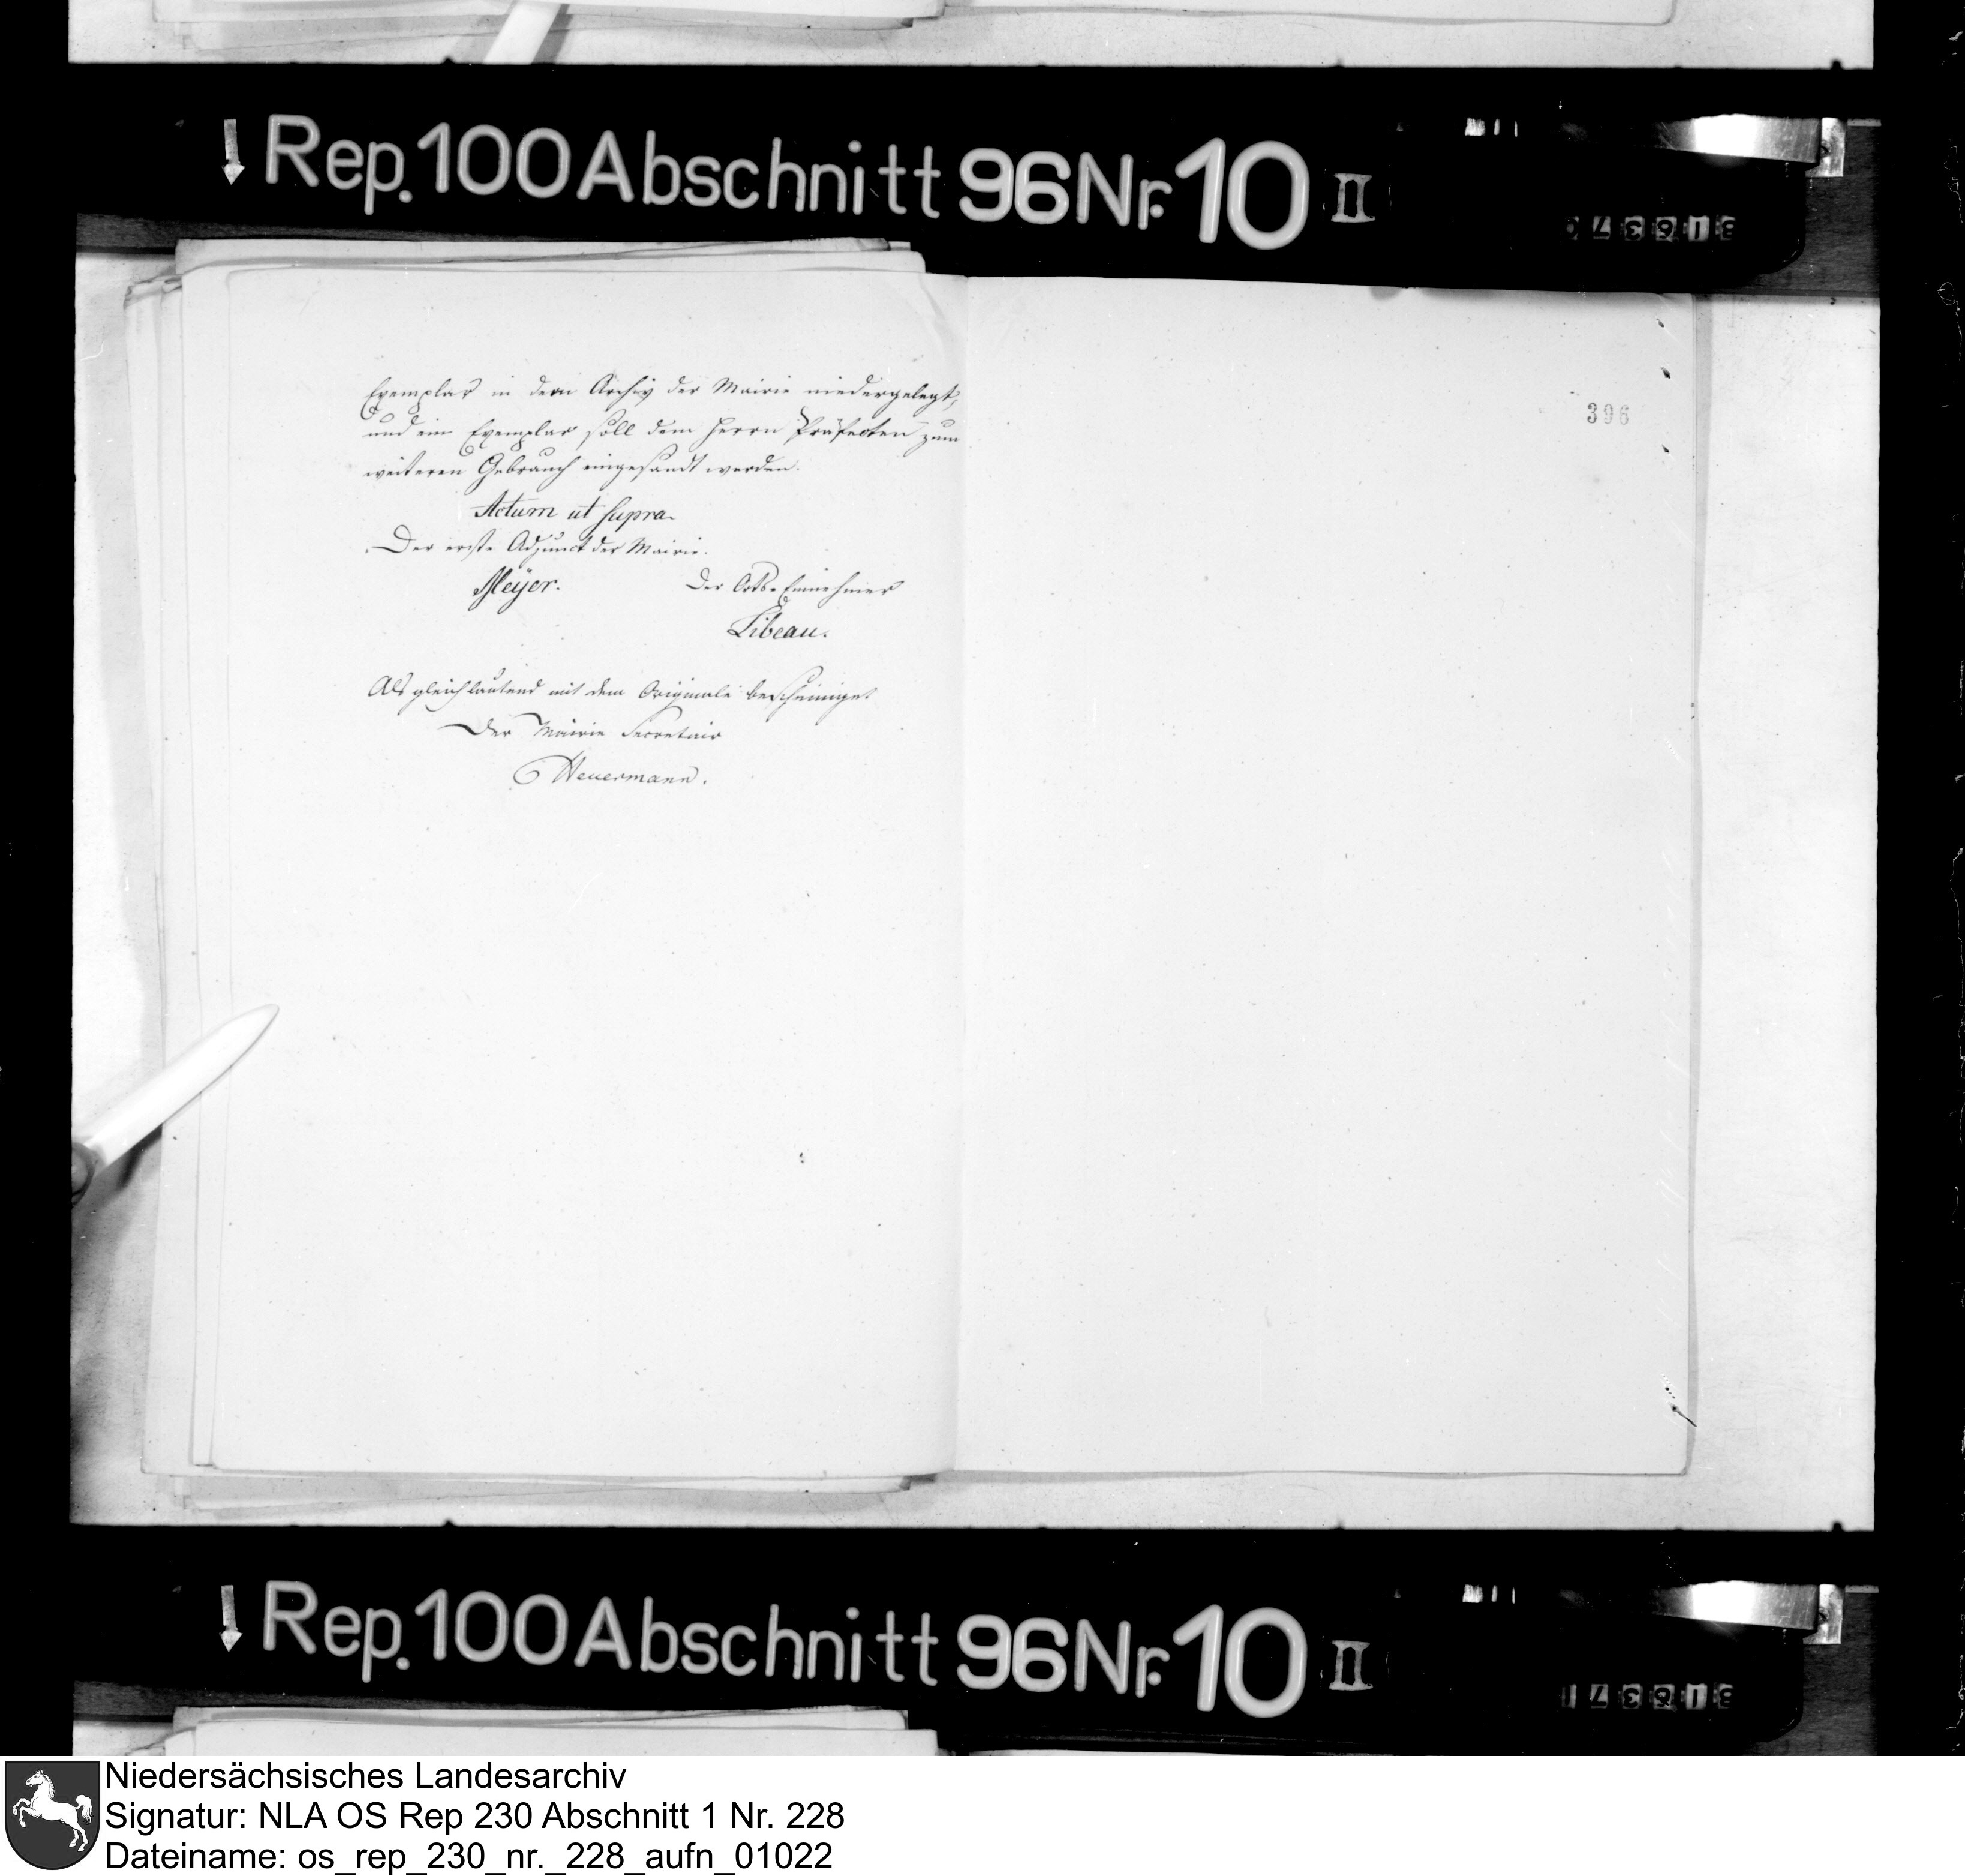 Rep. 100 Abschnitt 96 Nr. 10 II
Exemplar in dem Archiv der Mairie niedergelegt,
und ein Exemplar soll dem Herrn Präfecten zum
weiteren Gebrauch eingesandt werden.
Actum ut supra.
Der erste Adjunct der Mairie.
Meÿer.
Der Orts-Einnehmer
Libeau.
Als gleichlautend mit dem Originale bescheiniget
Der Mairie Secretair
Heuermann.
396
Rep. 100 Abschnitt 96 Nr. 10 II
Niedersächsisches Landesarchiv
Signatur: NLA OS Rep 230 Abschnitt 1 Nr. 228
Dateiname: os_rep_230_nr._228_aufn_01022